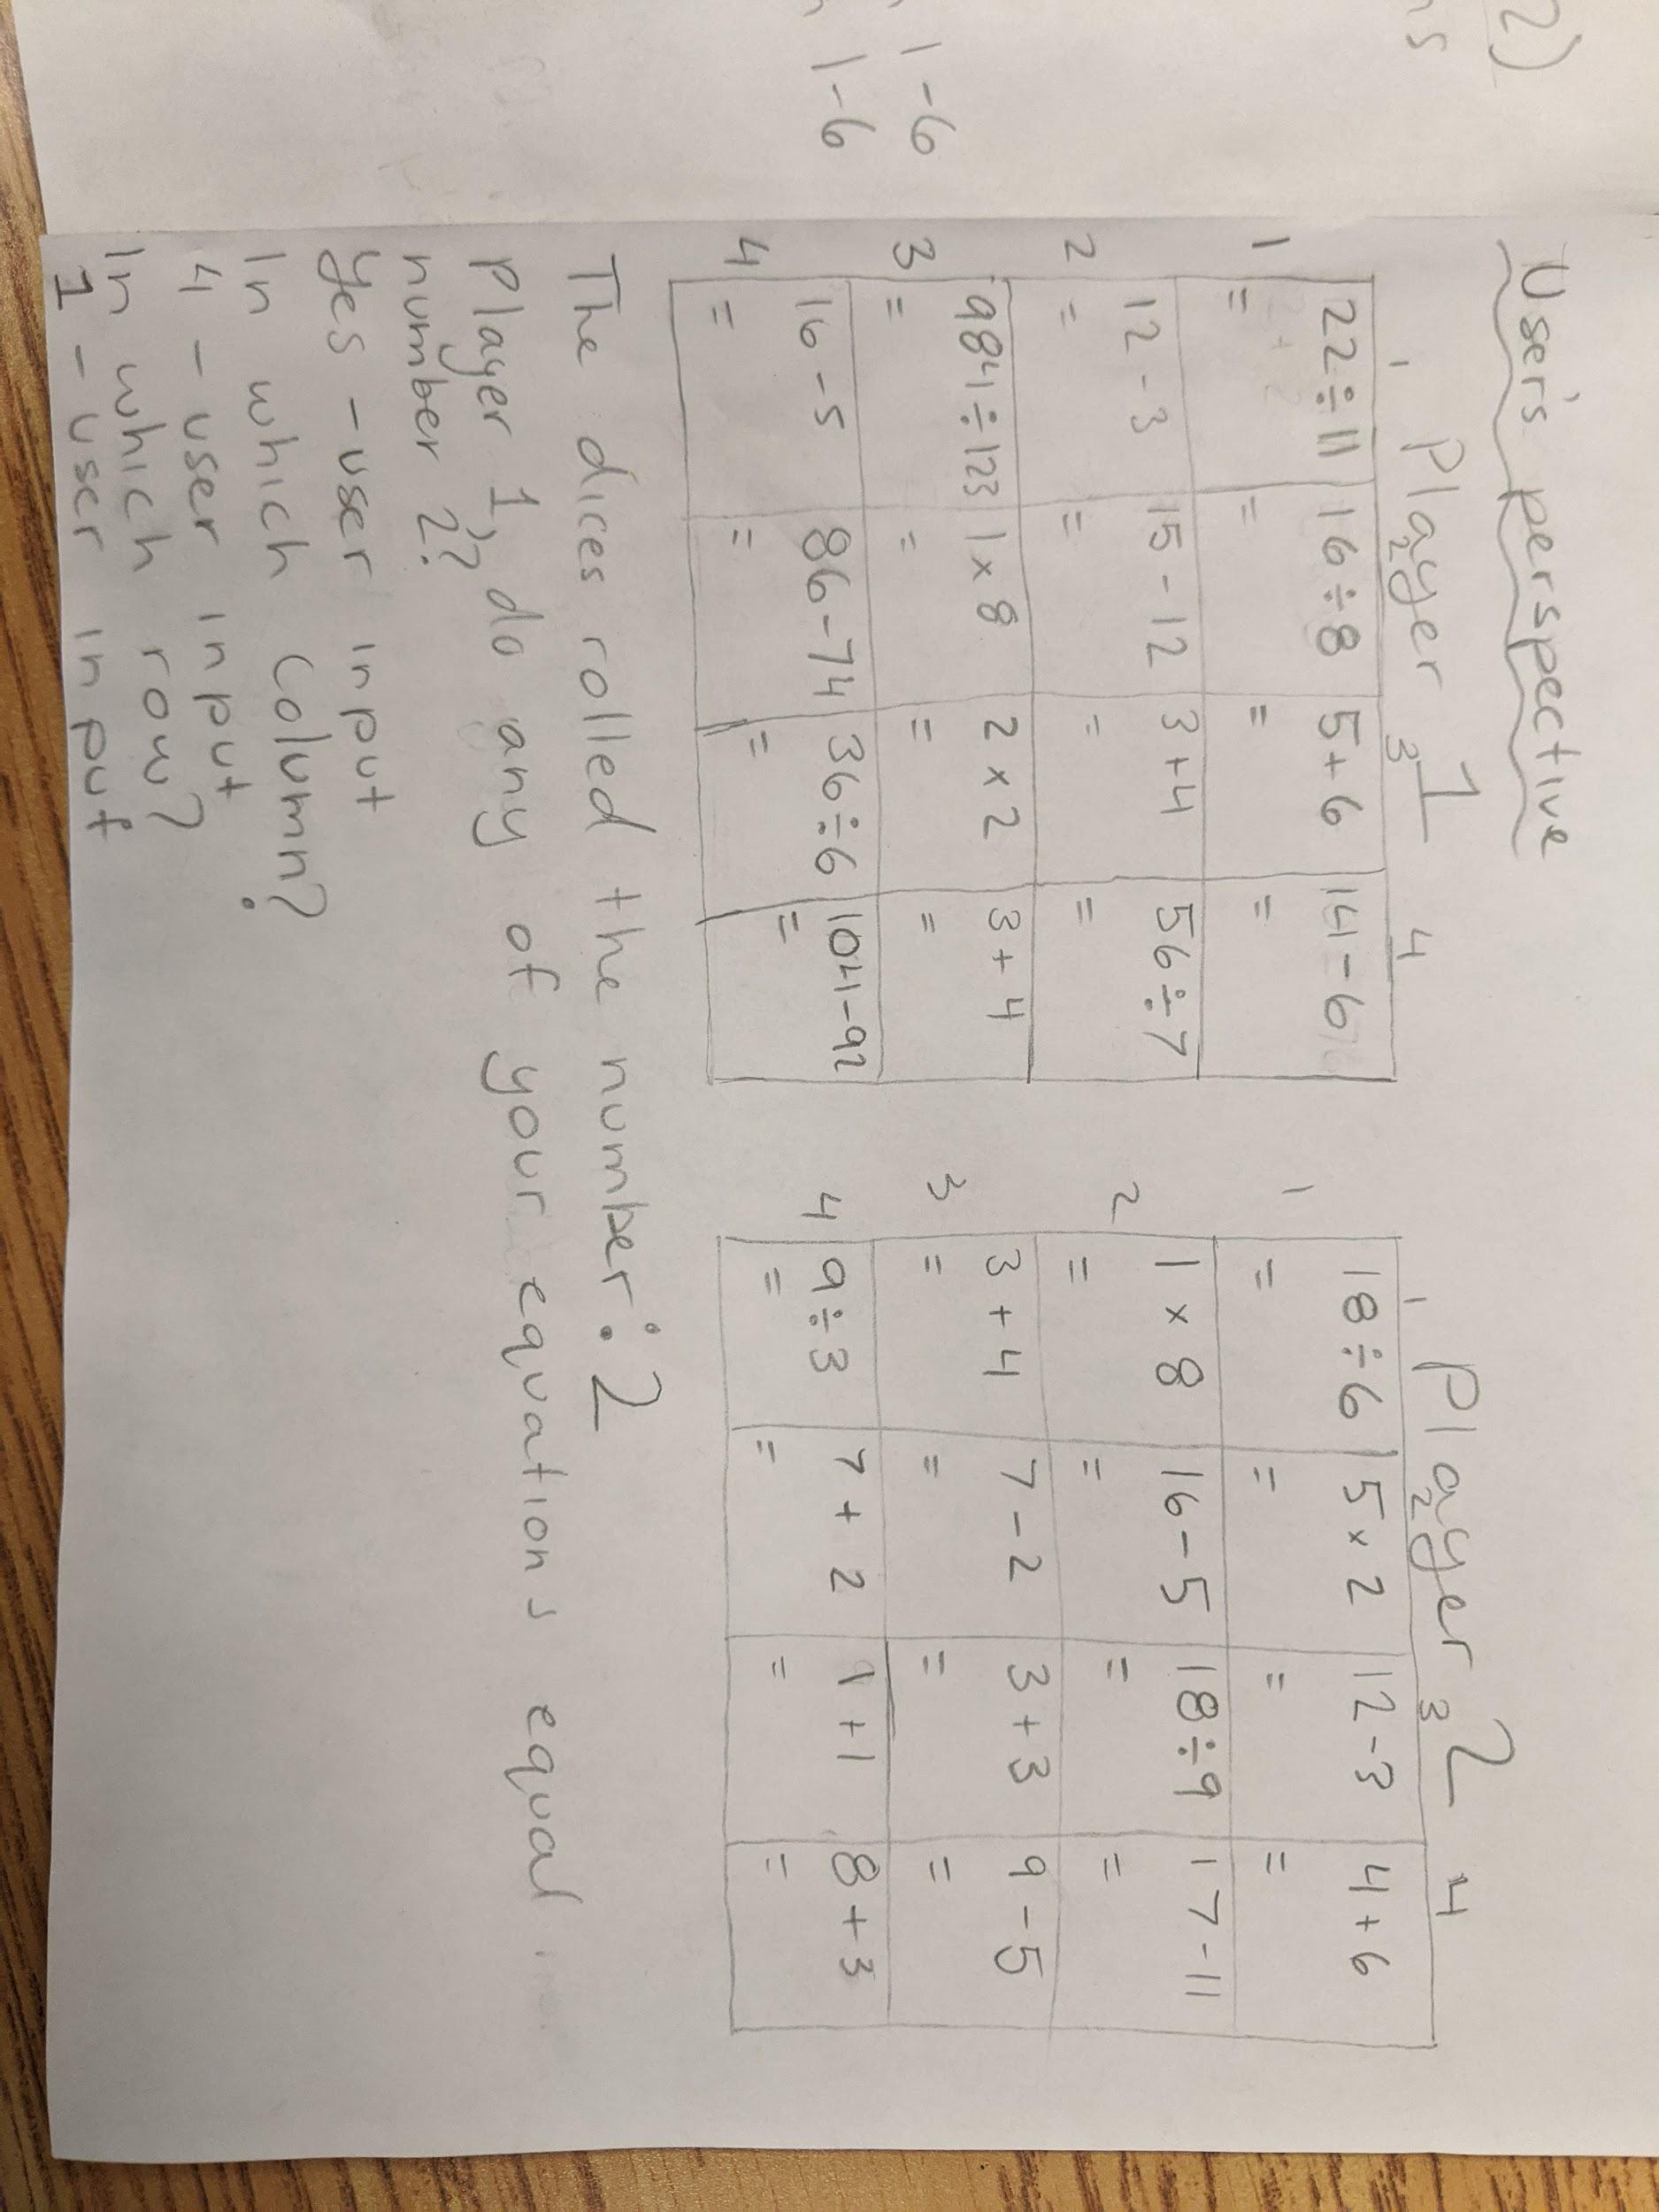 2)
ns
1-6
1-6
User's perspective
Player 1
1 2 3 4
1 22÷11 16÷8 5+6 14-6
= = = =
2 12-3 15-12 3+4 56÷7
= = = =
3 984÷123 1×8 2×2 3+4
= = = =
4 16-5 86-74 36÷6 104-92
= = = =
Player 2
1 2 3 4
1 18÷6 5×2 12-3 4+6
= = = =
2 1×8 16-5 18÷9 17-11
= = = =
3 3+4 7-2 3+3 9-5
= = = =
4 9÷3 7+2 1+1 8+3
= = = =
The dices rolled the number: 2
Player 1, do any of your equations equal
number 2??
Yes - user input
In which column?
4 - user input
In which row?
1 - user input